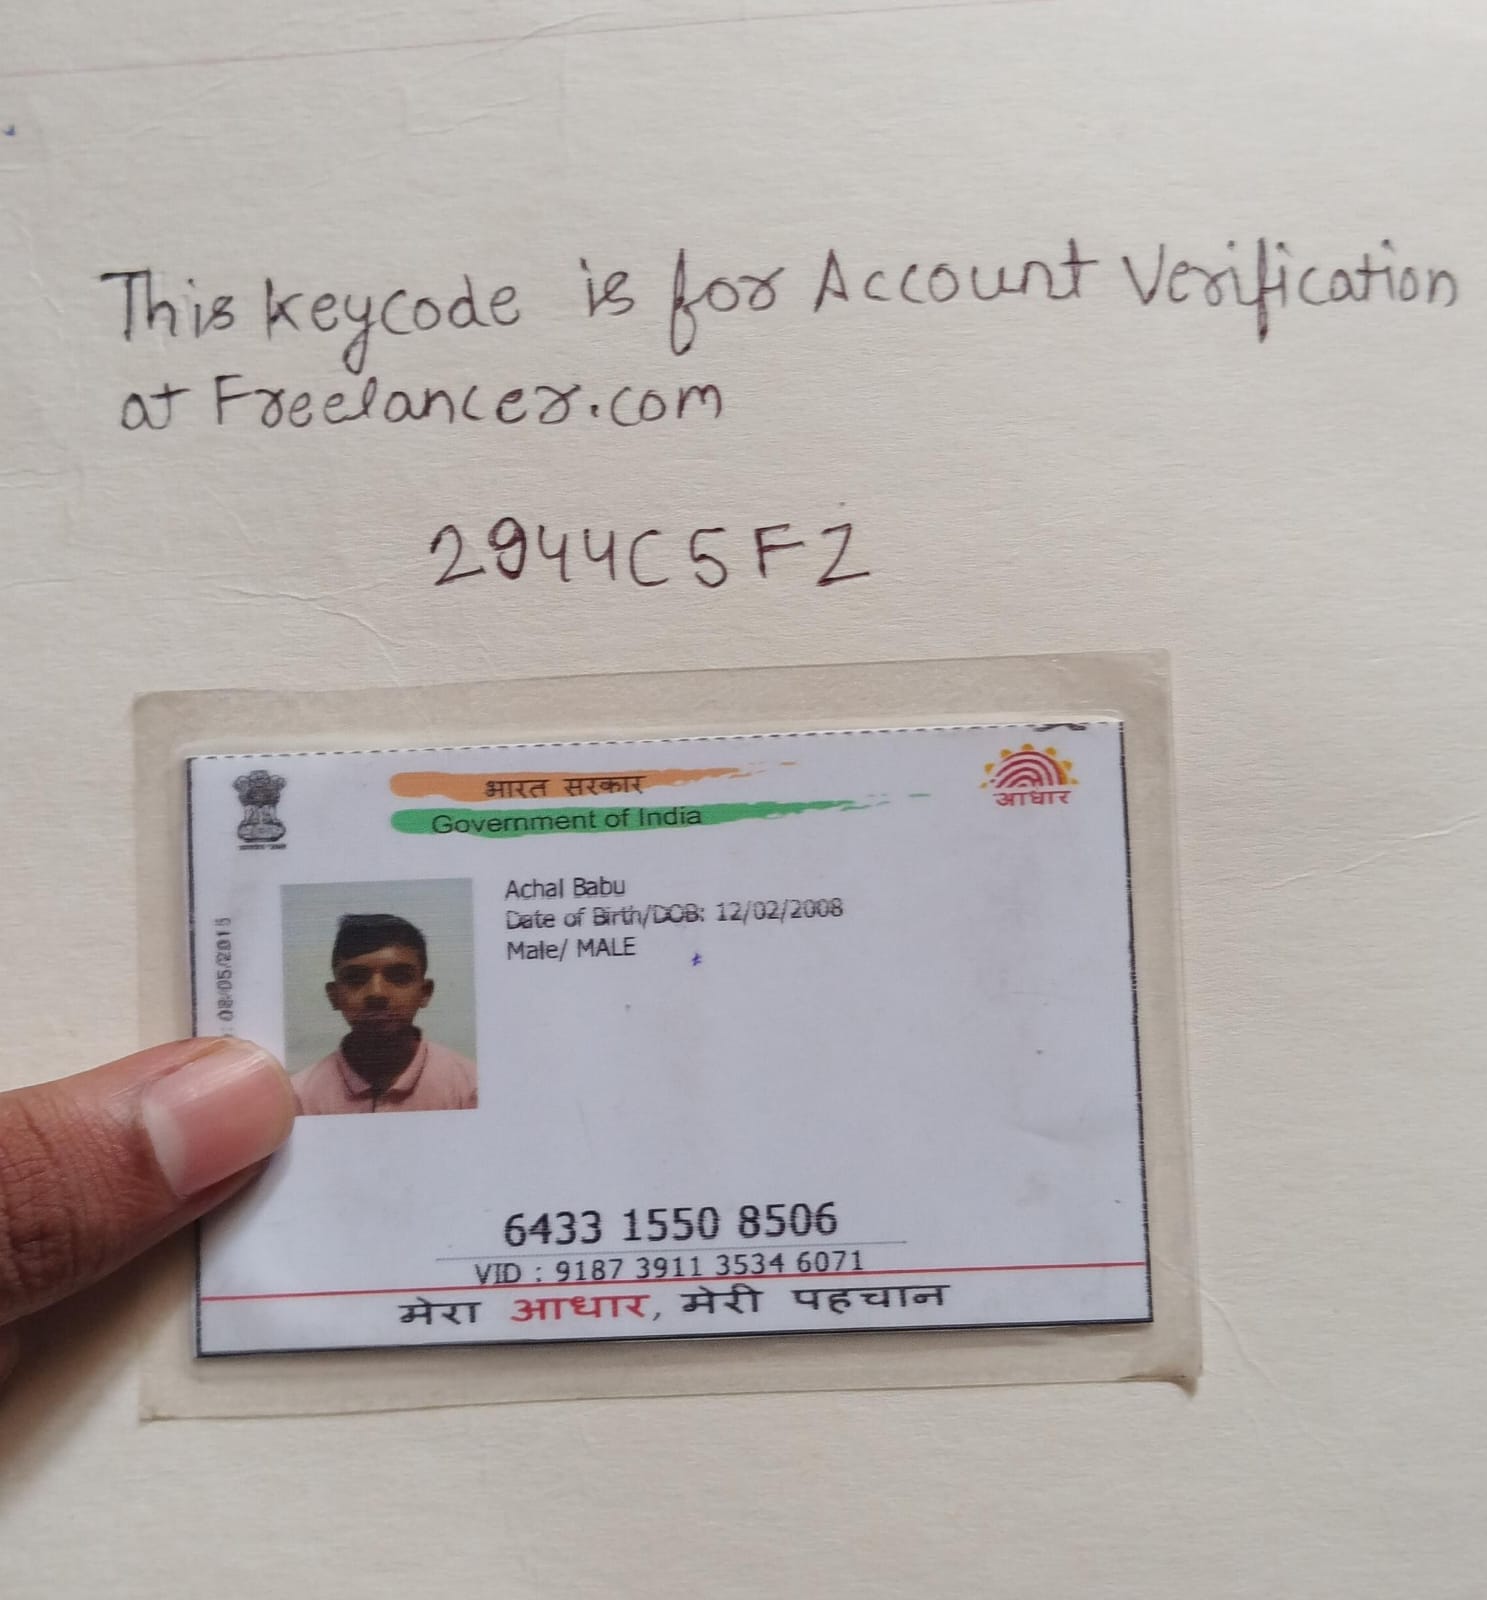 This keycode is for Account Verification
at Freelancer.com
2944C5FZ
भारत सरकार
Government of India
आधार
Achal Babu
Date of Birth/DOB: 12/02/2008
Male/ MALE
: 08/05/2015
6433 1550 8506
VID : 9187 3911 3534 6071
मेरा आधार, मेरी पहचान